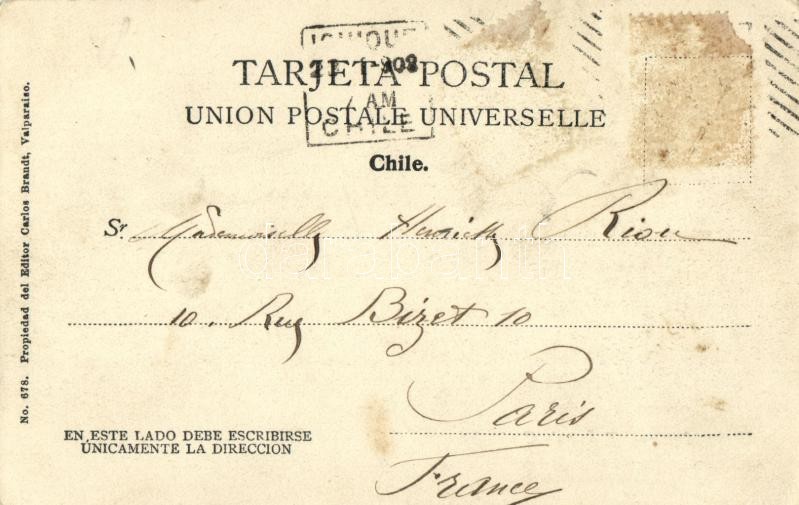 IQUIQUE
1902
TARJETA POSTAL
AM
UNION POSTALE UNIVERSELLE
CHILE
Chile.
Sr. Mademoiselle Henriette Riou
10, Rue Bizet 10
Paris
EN ESTE LADO DEBE ESCRIBIRSE
ÚNICAMENTE LA DIRECCION
France
No. 678. Propiedad del Editor Carlos Brandt, Valparaiso.